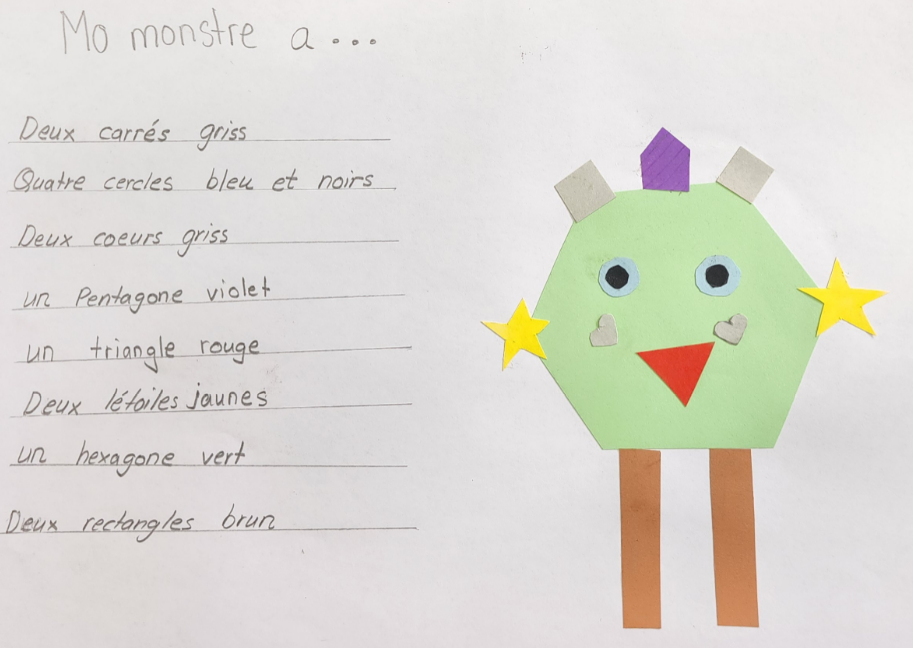 Mo monstre a...
Deux carrés griss
Quatre cercles bleu et noirs
Deux coeurs griss
un Pentagone violet
un triangle rouge
Deux létoiles jaunes
un hexagone vert
Deux rectangles brun